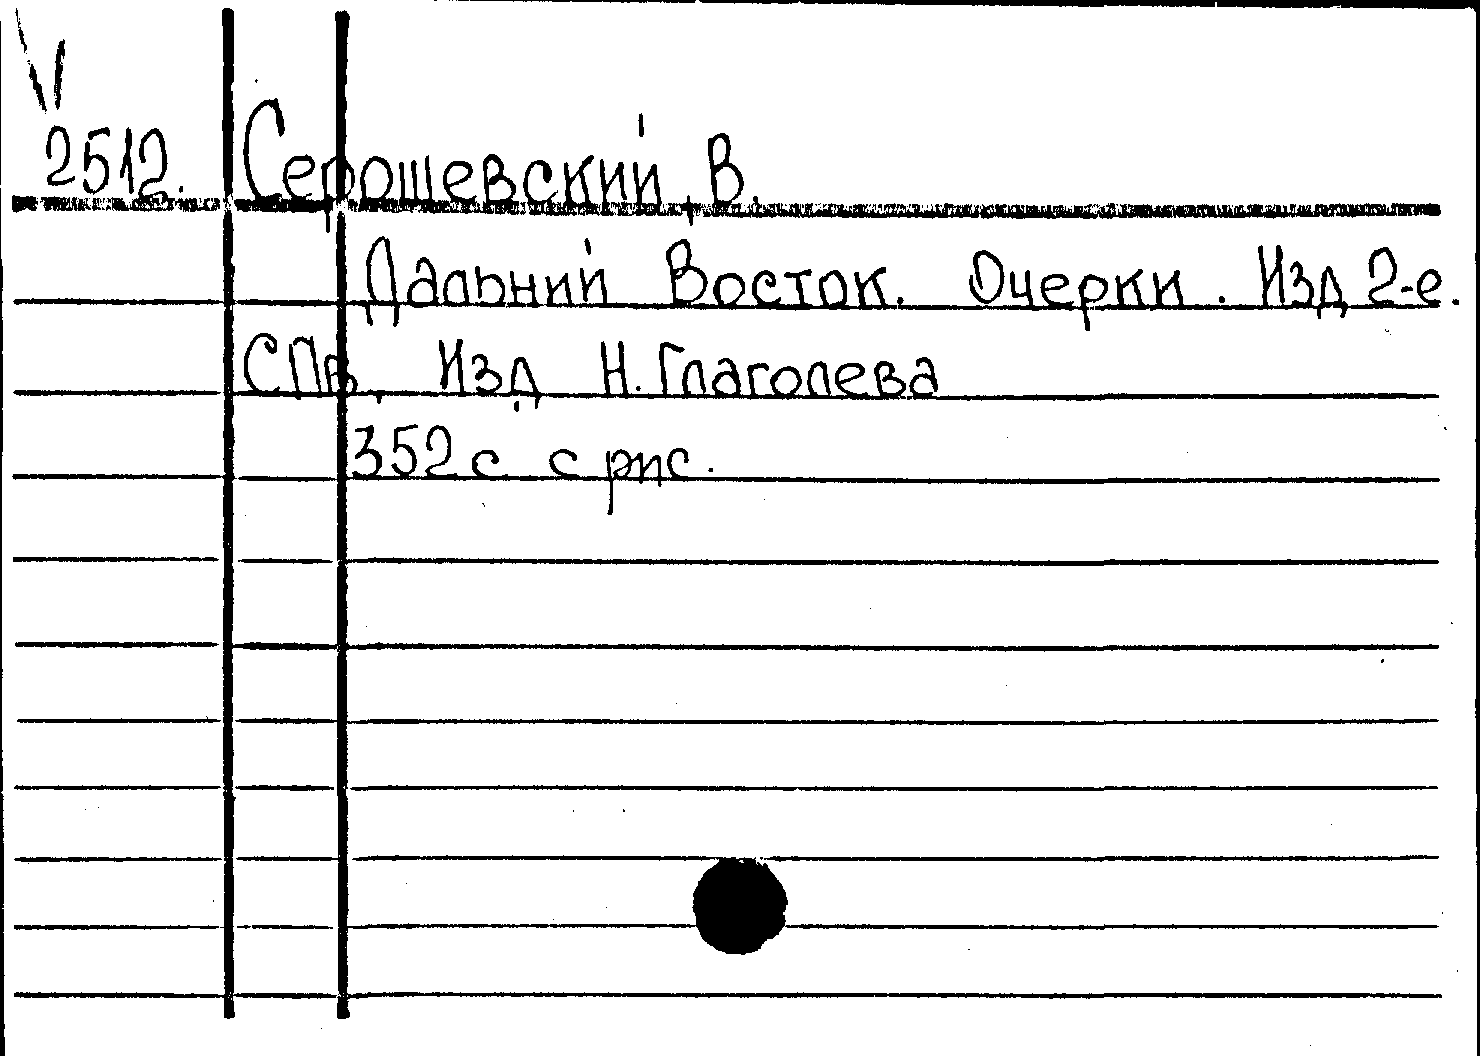 V
2512. Серошевский, В.
Дальний Восток. Очерки. Изд 2-е.
СПв, Изд. Н. Глаголева
352 с с рис.